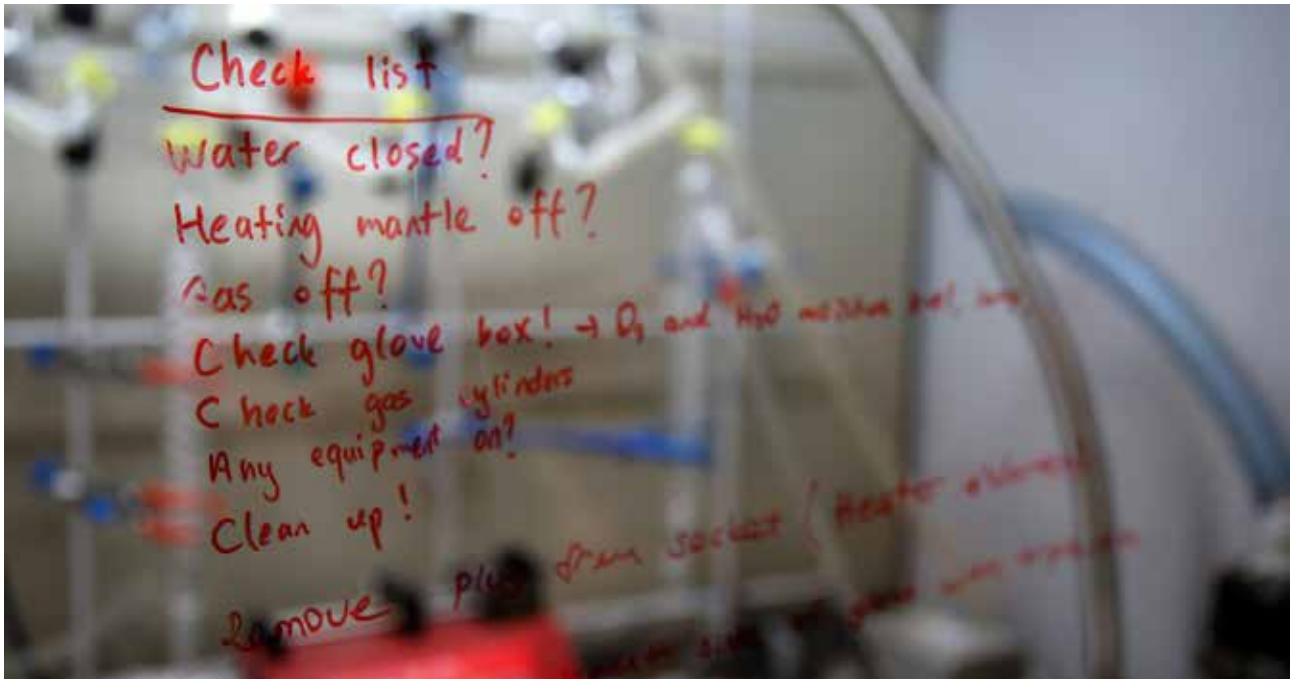 Check list
Water closed?
Heating mantle off?
Gas off?
Check glove box! → O₂ and H₂O
Check gas cylinders
Any equipment on?
Clean up!
Remove plug from socket (Heater